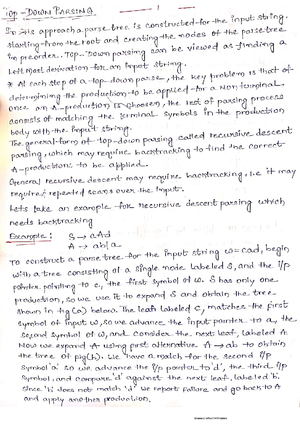 Top-DOWN PARSING
1
In this approach a parse tree is constructed for the input string.
starting from the root and creating the nodes of the parse tree
in preorder. Top-Down parsing can be viewed as finding a
Left most derivation for an input string.
* At each step of a top-down parse, the key problem is that of
determining the production to be applied for a Non terminal.
once an A-production is choosen, the rest of parsing process
consists of matching the terminal symbols in the production
body with the input string.
The general form of top-down parsing called recursive descent
parsing, which may require backtracking to find the correct
A-productions to be applied.
General recursive descent may require backtracking, i.e it may
require repeated scans over the input.
Lets take an example for recursive descent parsing which
needs backtracking
Example: S → cAd
A → ab|a
To construct a parse tree for the input string w=cad, begin
with a tree consisting of a single node labeled S, and the i/p
pointer pointing to c, the first symbol of w. S has only one
production, so we use it to expand S and obtain the tree
shown in fig(a) below. The leaf labeled c, matches the first
symbol of input w, so we advance the input pointer to a, the
second symbol of w, and consider the next leaf, labeled A.
Now we expand A using first alternative A → ab to obtain
the tree of fig(b). We have a match for the second i/p
symbol 'a' so we advance the i/p pointer to 'd', the third i/p
symbol, and compare 'd' against the next leaf, labeled 'b'.
Since 'b' does not match 'd' we report failure and go back to A
and apply another production.